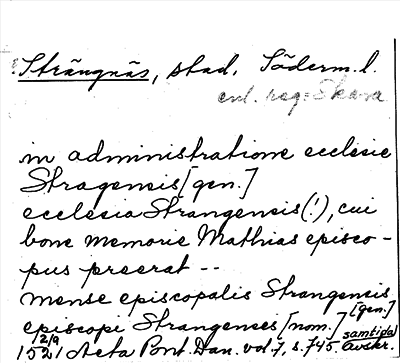 Strängnäs, stad. Söderm. l.
enl. reg: Skara
in administratione ecclesie
Stragensis [gen.]
ecclesia Strangensis (!), cui
bone memorie Mathias episco-
pus preerat --
mense episcopalis Strangensis [gen.]
episcopi Strangenses [nom.]
2/9 1521 Acta Pont. Dan. vol. 7, s. 745 samtida avskr.